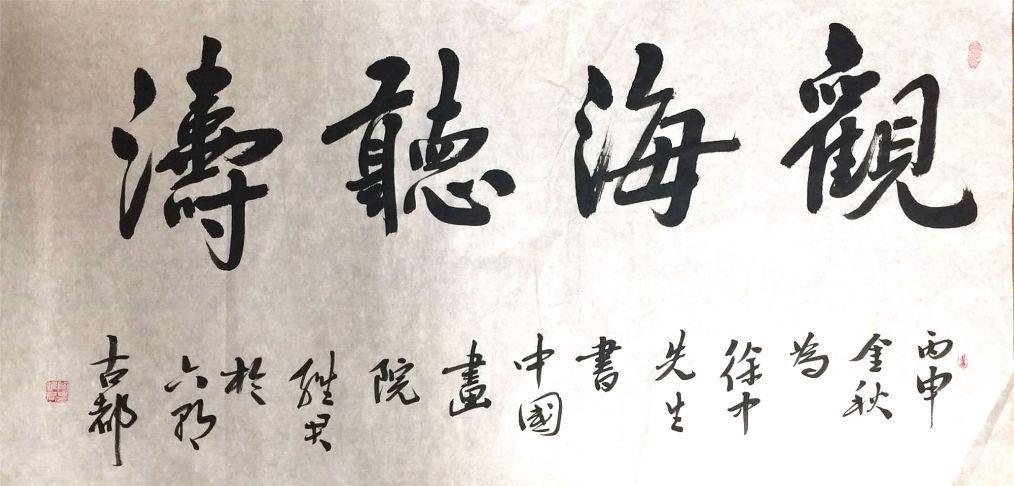 觀海聽濤
丙申
金秋
為
徐中
先生
書
中國
畫
院
於
六朝
古都